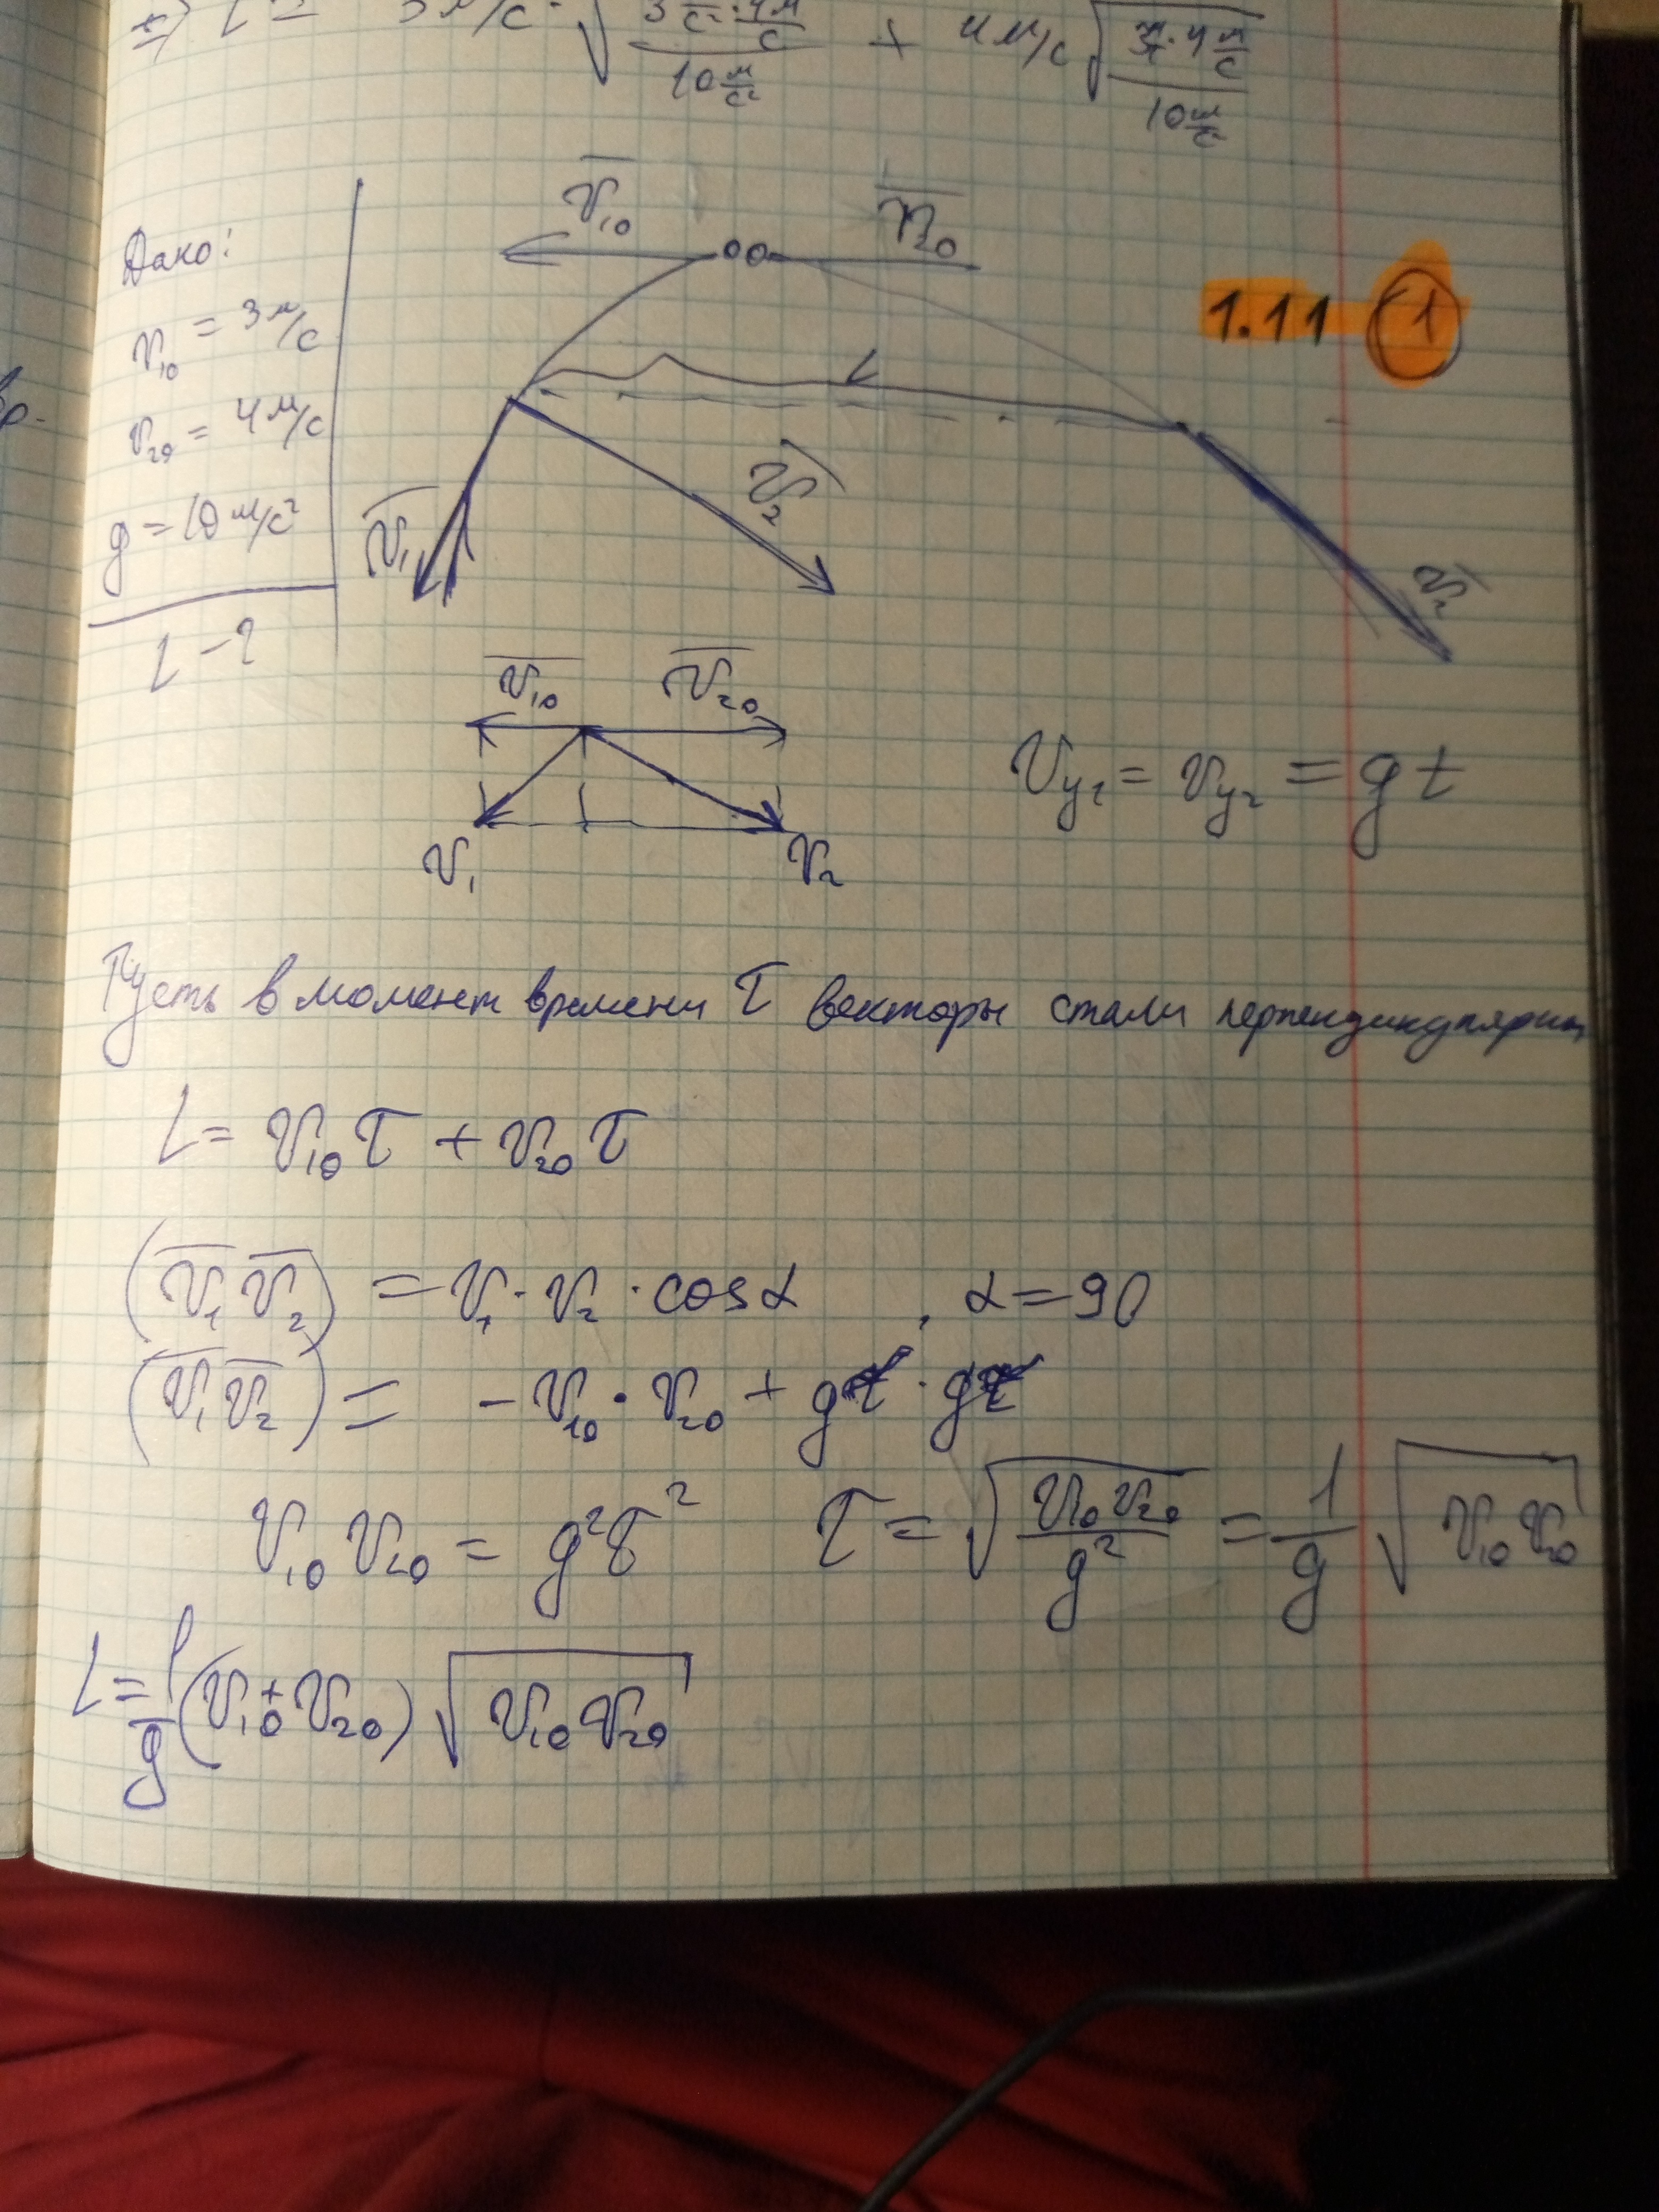 => L = 3 м/с · √(3 м/с · 4 м/с / 10 м/с²) + 4 м/с √(3 · 4 м/с / 10 м/с²)
Дано:
v₁₀ = 3 м/с
v₂₀ = 4 м/с
g = 10 м/с²
L - ?
v₁₀ v₂₀
1.11 1
L
v₁ v₂ v₂
v₁₀ v₂₀
v₁ v₂
v_y₁ = v_y₂ = gt
Пусть в момент времени τ векторы стали перпендикулярны
L = v₁₀τ + v₂₀τ
(v₁ v₂) = v₁ · v₂ · cosα , α = 90
(v₁ v₂) = - v₁₀ · v₂₀ + gτ · gτ
v₁₀ v₂₀ = g²τ² τ = √(v₁₀ v₂₀ / g²) = 1/g √(v₁₀ v₂₀)
L = 1/g (v₁₀ + v₂₀) √(v₁₀ v₂₀)